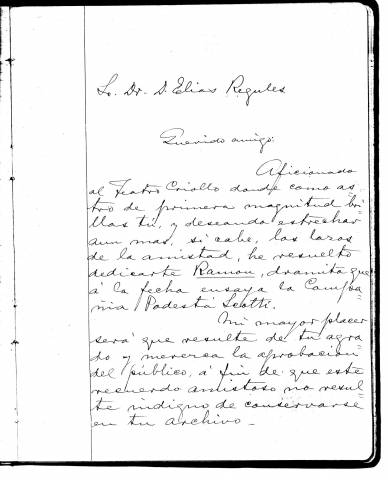 Sr. Dr. D. Elias Regules
Querido amigo:
Aficionado
al Teatro Criollo donde como as=
tro de primera magnitud bri=
llas tú, y deseando estrechar
aun mas, si cabe, los lazos
de la amistad, he resuelto
dedicarte Ramon, dramita que
á la fecha ensaya la Compa=
ñia Podestá Scotti.
Mi mayor placer
será que resulte de tu agra=
do y merezca la aprobacion
del público, á fin de que este
recuerdo amistoso no resul=
te indigno de conservarse
en tu archivo_